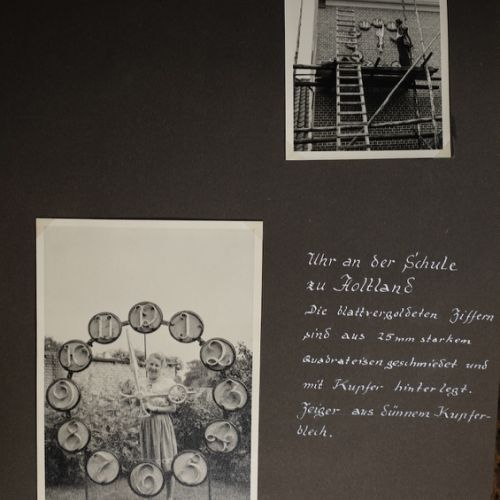 Uhr an der Schule
zu Holtland
Die blattvergoldeten Ziffern
sind aus 25mm starkem
Quadrateisen geschmiedet und
mit Kupfer hinterlegt.
Zeiger aus dünnem Kupfer-
blech.